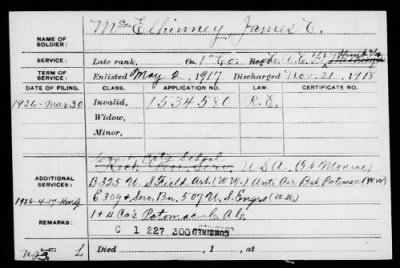 NAME OF SOLDIER: McElhinney, James C.
SERVICE: Late rank, Co. 1" Co. Reg't C.A.C. Ft.
TERM OF SERVICE: Enlisted May 2, 1917 Discharged Nov. 21, 1918
DATE OF FILING. CLASS. APPLICATION NO. LAW. CERTIFICATE NO.
1926-Mar 30 Invalid, 1534580 R.E.
Widow,
Minor,
School U.S.A. (Ft Monroe)
ADDITIONAL SERVICES: B 325 U.S. Field Art. (WW.) Anti Air Bat Potomac (WW)
1926-4-17 E 309 & Serv. Bn. 507 U.S. Engrs (W.W.)
1 & 4 Co's Potomac
C 1 227 300
Died , 1 , at
L